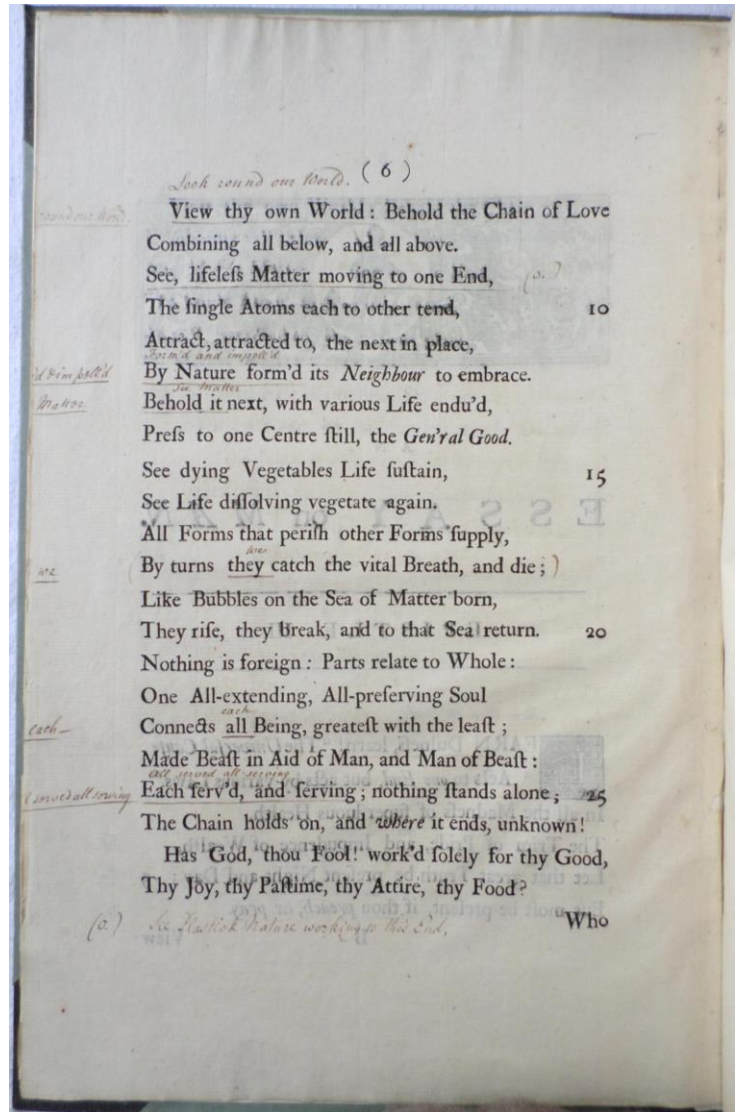 (6)
Look round our World.
round our World.
View thy own World: Behold the Chain of Love
Combining all below, and all above.
See, lifeleſs Matter moving to one End, (o.)
The ſingle Atoms each to other tend, 10
Attract, attracted to, the next in place,
Form'd and impell'd
'd & impell'd
By Nature form'd its Neighbour to embrace.
See Matter
Matter
Behold it next, with various Life endu'd,
Preſs to one Centre ſtill, the Gen'ral Good.
See dying Vegetables Life ſuſtain, 15
See Life diſſolving vegetate again.
All Forms that periſh other Forms ſupply,
we
we
(By turns they catch the vital Breath, and die;)
Like Bubbles on the Sea of Matter born,
They riſe, they break, and to that Sea return. 20
Nothing is foreign: Parts relate to Whole:
One All-extending, All-preſerving Soul
each
each
Connects all Being, greateſt with the leaſt;
Made Beaſt in Aid of Man, and Man of Beaſt:
All served all serving
served all serving
Each ſerv'd, and ſerving; nothing ſtands alone; 25
The Chain holds on, and where it ends, unknown!
Has God, thou Fool! work'd ſolely for thy Good,
Thy Joy, thy Paſtime, thy Attire, thy Food?
Who
(o.) See Plastick Nature working to this End,